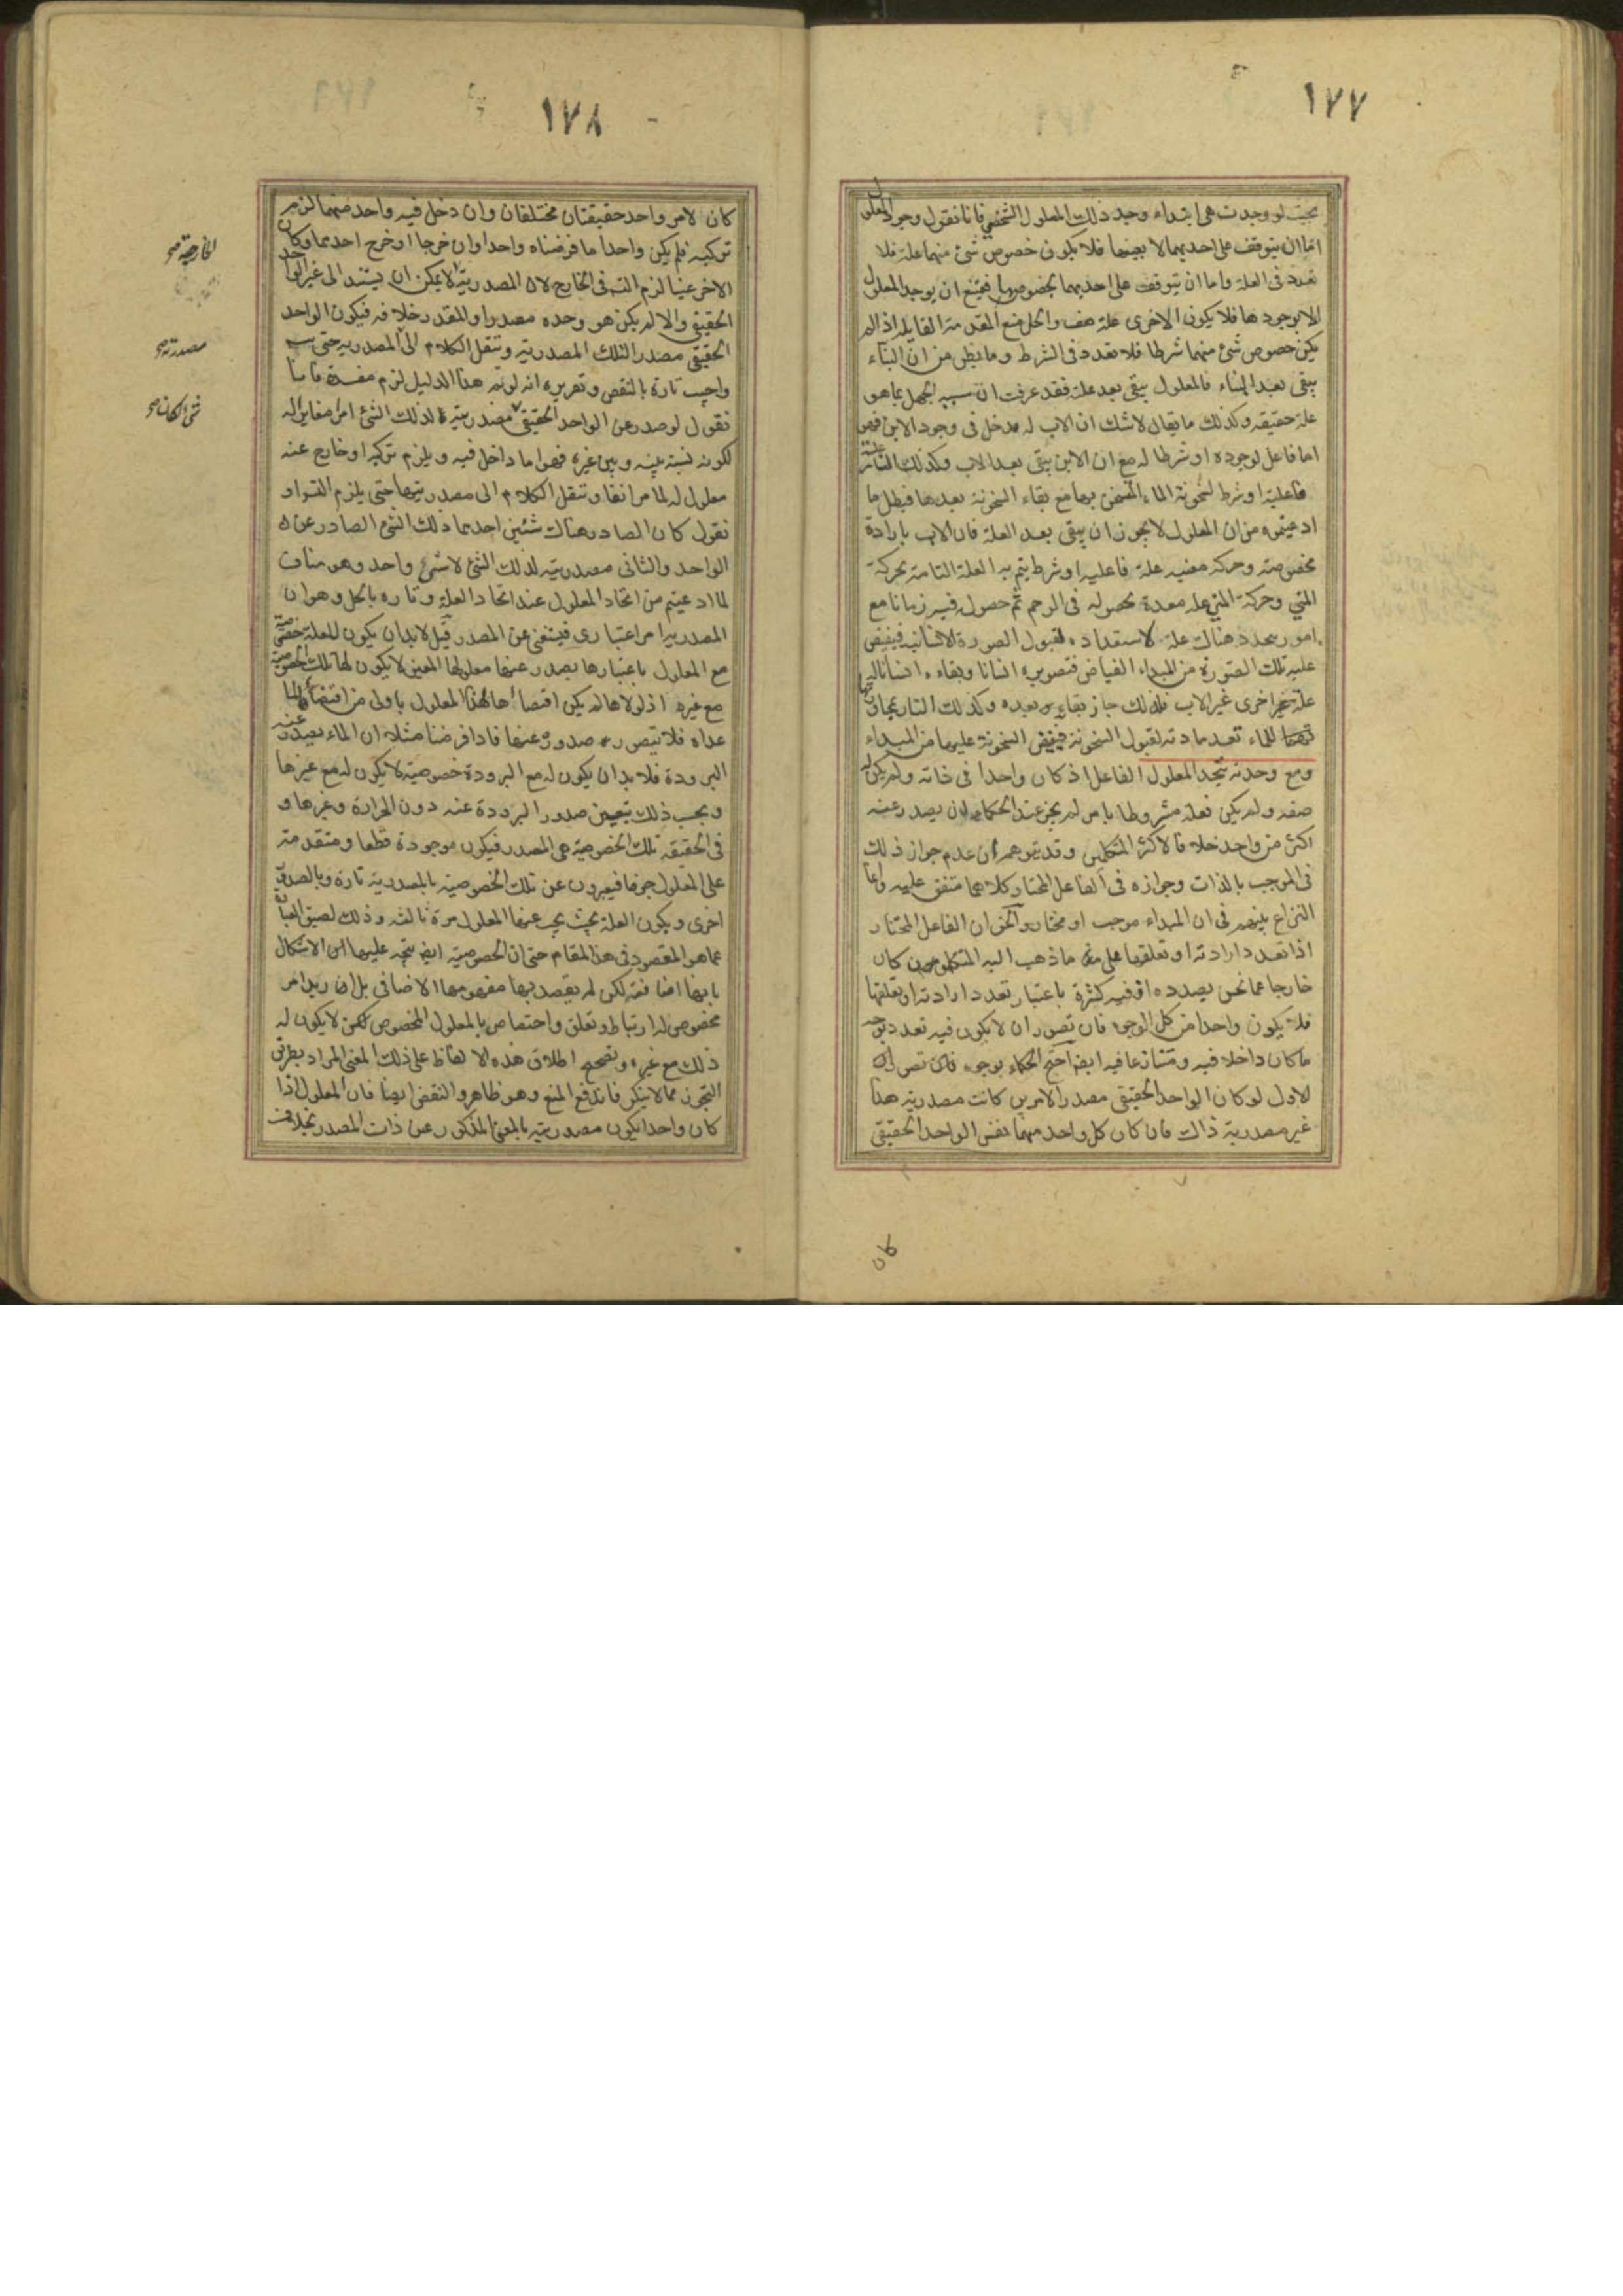 ١٧٧
بحيث لو وجدت هي ابتداء وجد ذلك المعلول الشخصي فانا نقول وجود المعلول
اما ان يتوقف على احديهما لا بعينها فلا يكون خصوص شئ منهما علة فلا
تعدد في العلة واما ان يتوقف على احديهما بخصوصها فيمتنع ان يوجد المعلول
الا بوجودها فلا يكون الاخرى علة هف والحل منع المقدمة القايلة اذا لم
يكن خصوص شئ منهما شرطا فلا تعدد في الشرط وما يظن من ان البناء
يبقى بعد البناء فالمعلول يبقى بعد علة فقد عرفت ان سببه الجهل بما هو
علة حقيقة وكذلك ما يقال لا شك ان الاب له مدخل في وجود الابن فهو
اما فاعل لوجوده او شرط له مع ان الابن يبقى بعد الاب وكذلك النار علة
فاعلية او شرط لسخونة الماء المتسخن بها مع بقاء السخونة بعدها فبطل ما
ادعيتموه من ان المعلول لا يجوز ان يبقى بعد العلة فان الاب بارادة
مخصوصة وحركة معينة علة فاعلية او شرط يتم به العلة التامة بحركة
المني وحركة المني علة معدة لحصوله في الرحم ثم حصول فيه زمانا مع
امور يتجدد هناك علة لاستعداده لقبول الصورة الانسانية فيفيض
عليه تلك الصورة من المبداء الفياض فتصويره انسانا وبقاءه انسانا له
علة اخرى غير الاب فلذلك جاز بقاءه بعده وكذلك النار بمجاورتها
للماء تعد مادته لقبول السخونة فيفيض السخونة عليها من المبداء
ومع وحدته يتحد المعلول الفاعل اذ كان واحدا في ذاته ولم يكن له
صفة ولم يكن فعله مشروطا بامر لم يجز عند الحكماء ان يصدر عنه
اكثر من واحد خلافا لاكثر المتكلمين وقد يتوهم ان عدم جواز ذلك
في الموجب بالذات وجوازه في الفاعل المختار كلاهما متفق عليه وانما
النزاع بينهم في ان المبداء موجب او مختار والحق ان الفاعل المختار
اذا تعدد ارادته او تعلقها على ما ذهب اليه المتكلمون كان
خارجا عما نحن بصدده اذ فيه كثرة باعتبار تعدد ارادته او تعلقها
فلا يكون واحدا من كل الوجوه فان تصور ان لا يكون فيه تعدد بوجه
ما كان داخلا فيه ومتنازعا فيه ايضا احتج الحكماء بوجوه
الاول لو كان الواحد الحقيقي مصدرا لامرين كانت مصدرية هذا
غير مصدرية ذاك فان كان كل واحد منهما نفس الواحد الحقيقي
كان
١٧٨
كان لامر واحد حقيقتان مختلفتان وان دخل فيه واحد منهما لزم
تركيبه فلم يكن واحدا ما فرضناه واحدا وان خرجا او خرج احدهما وكان
الاخر عينا لزم التس في الخارج لان المصدرية لا يمكن ان يستند الى غير الواحد
الحقيقي والا لم يكن هو وحده مصدرا والمقدر خلافه فيكون الواحد
الحقيقي مصدرا لتلك المصدرية وننقل الكلام الى المصدرية حتى يتس
واجيب تارة بالنقض وتقريره انه لو تم هذا الدليل لزم مفسدة فانا
نقول لو صدر عن الواحد الحقيقي مصدرية لذلك الشئ امر مغاير له
لكونه نسبة بينه وبين غيره فهو اما داخل فيه ويلزم تركبه او خارج عنه
معلول له لما مر انفا وننقل الكلام الى مصدريتها حتى يلزم التس او
نقول كان الصادر هناك شيئين احدهما ذلك الشئ الصادر عن
الواحد والثاني مصدريته لذلك الشئ لا شئ واحد وهو مناف
لما ادعيتم من اتحاد المعلول عند اتحاد العلة وتارة بالحل وهو ان
المصدرية امر اعتباري فيستغني عن المصدر قيل لا بد ان يكون للعلة خصوصية
مع المعلول باعتبارها يصدر عنها معلولها المعين لا يكون لها تلك الخصوصية
مع غيره اذ لولاها لم يكن اقتضاءها لهذا المعلول باولى من اقتضاءها لما
عداه فلا يتصور صدوره عنها فاذا فرضنا مثلا ان الماء يصدر عنه
البرودة فلا بد ان يكون له مع البرودة خصوصية لا يكون له مع غيرها
وبحسب ذلك يتعين صدور البرودة عنه دون الحرارة وغيرها و
في الحقيقة تلك الخصوصية هي المصدر فيكون موجودة قطعا ومتقدمة
على المعلول جزما فيعبرون عن تلك الخصوصية بالمصدرية تارة وبالصدور
اخرى ويكون العلة بحيث يجب عنها المعلول مرة ثالثة وذلك لضيق العبارة
عما هو المقصود في هذا المقام حتى ان الخصوصية ايضا يتجه عليها الاشكال
بانها اضافة لكن لم يقصد بها مفهومها الاضافي بل ان يراد امر
مخصوص له ارتباط وتعلق واختصاص بالمعلول المخصوص لا يكون له
ذلك مع غيره وتصحيح اطلاق هذه الالفاظ على ذلك المعنى المراد بطريق
التجوز مما لا ينكر فاندفع المنع وهو ظاهر والنقض ايضا فان المعلول اذا
كان واحدا يكون مصدريته بالمعنى المذكور عين ذات المصدر بخلاف
الخارجية صح
مصدرته صح
شئ لكان صح